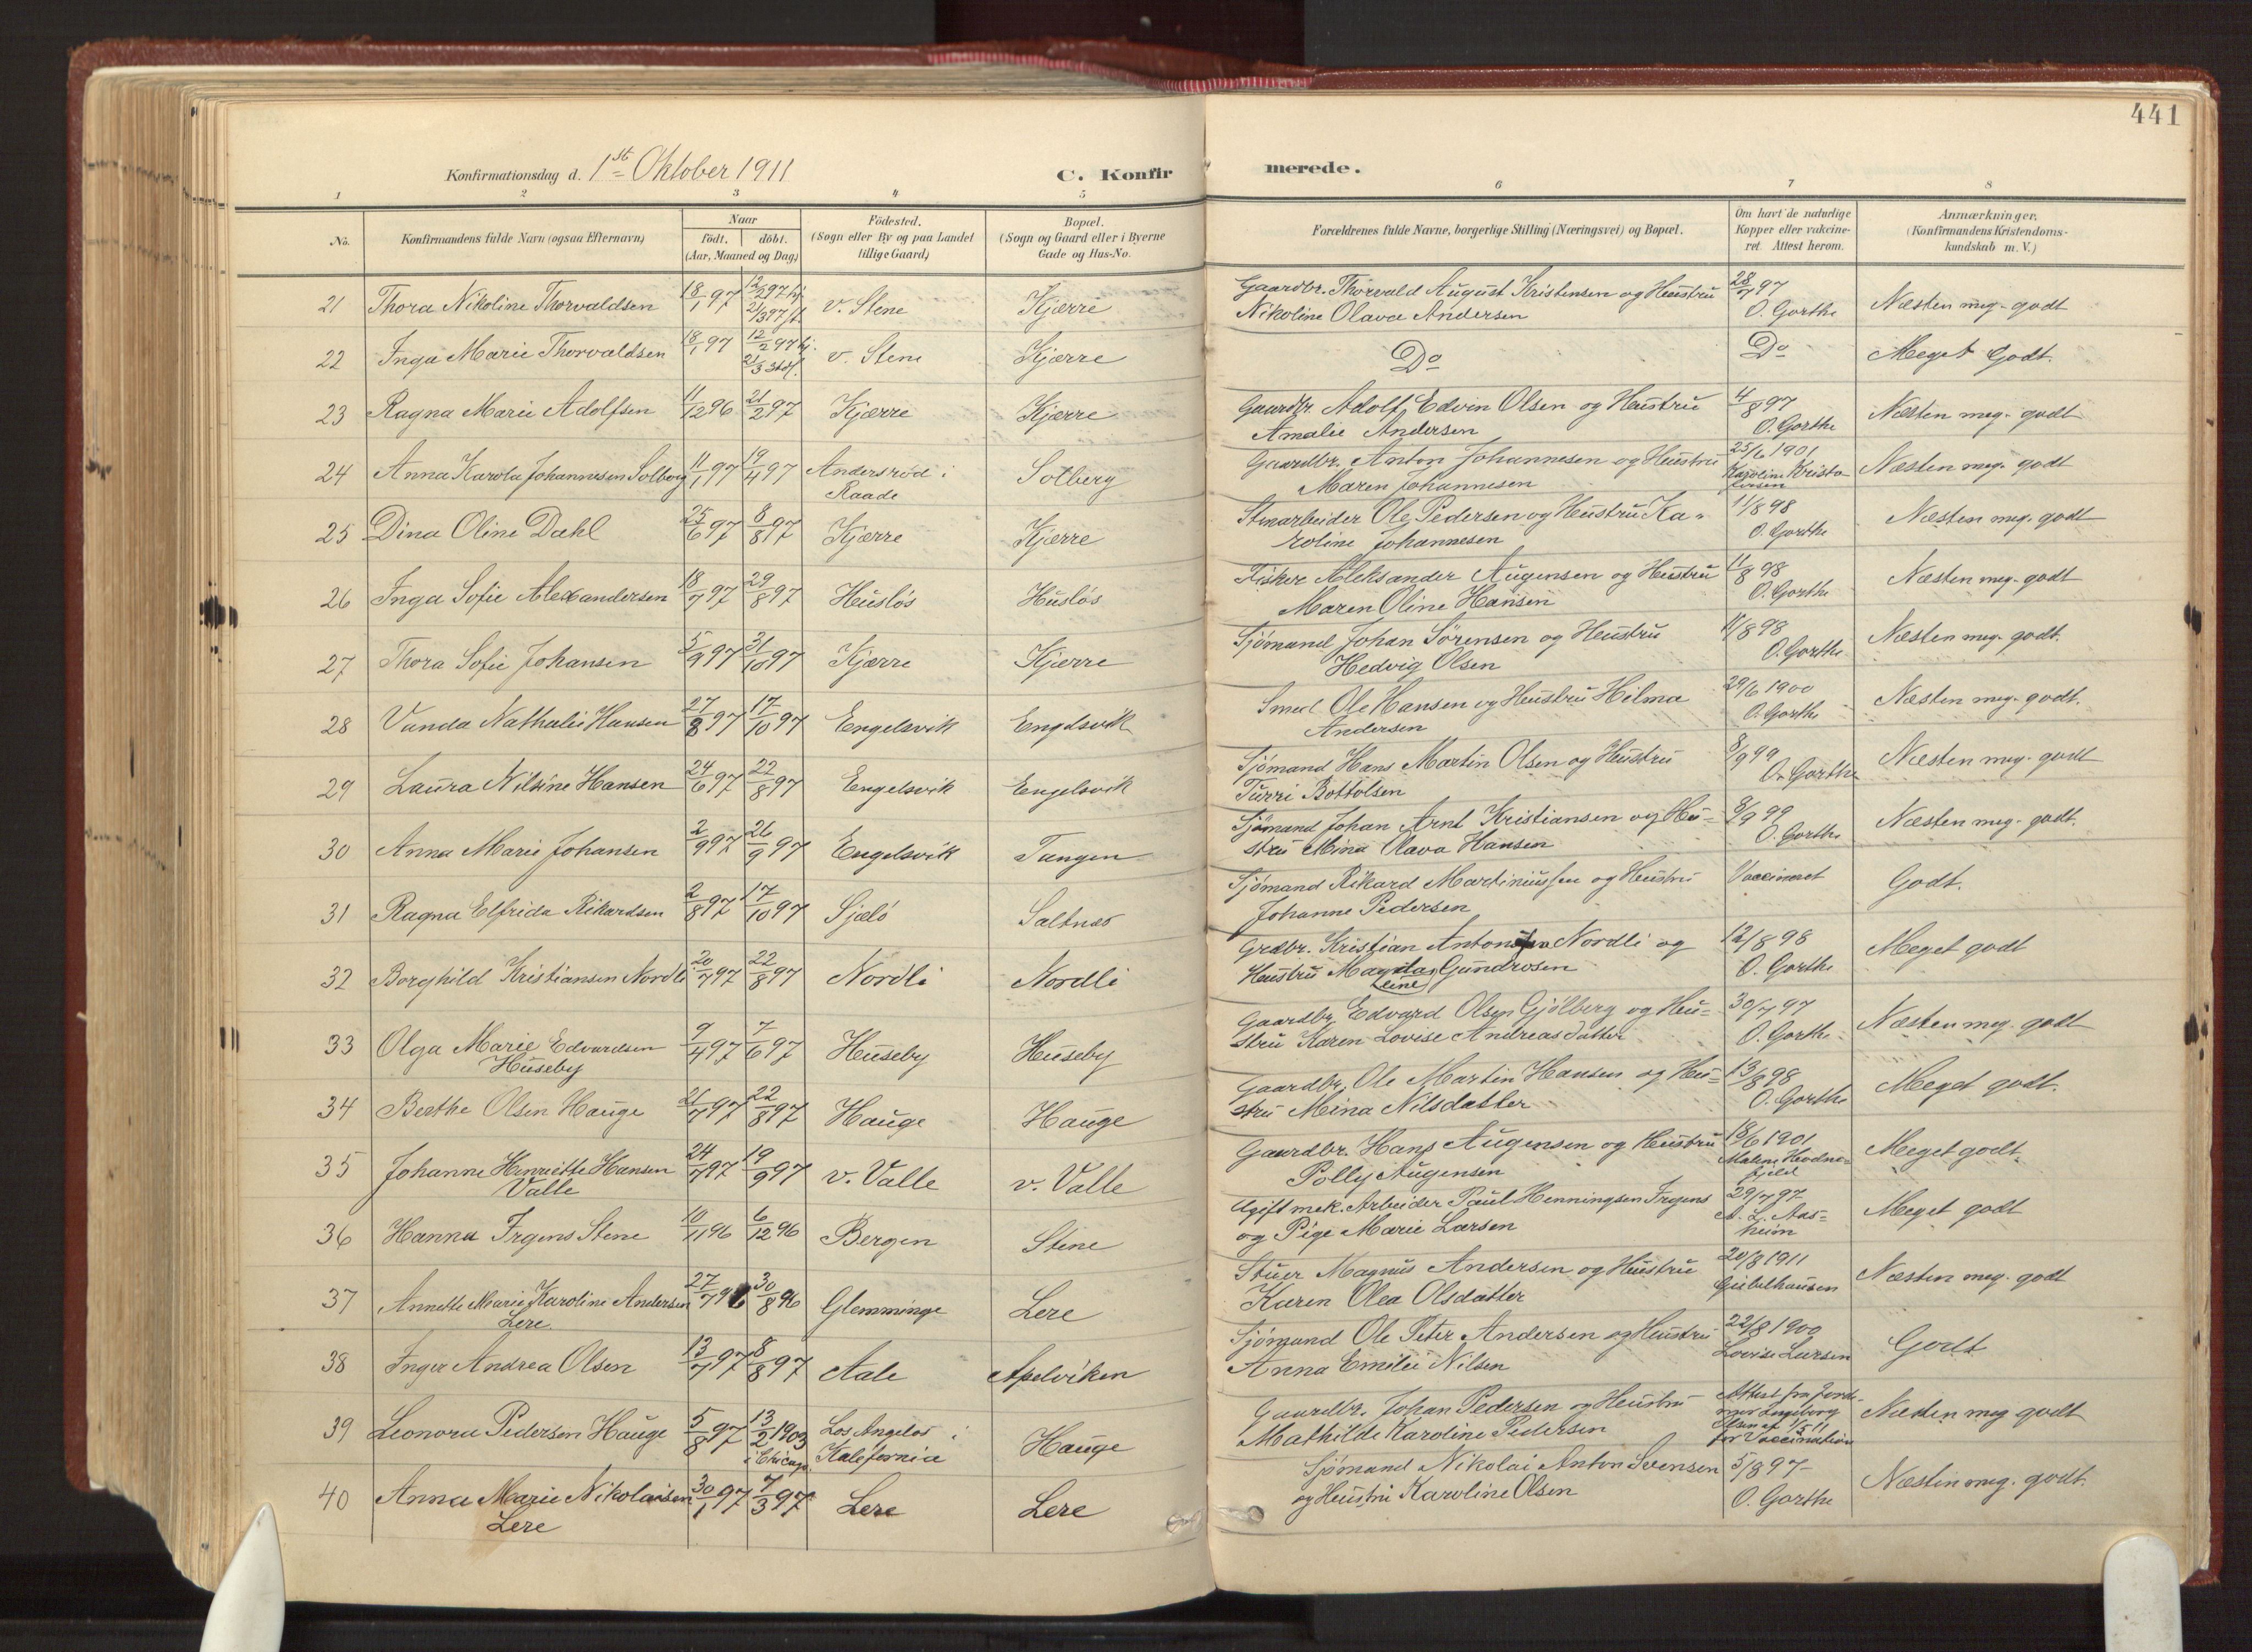 441
Konfirmationsdag d. 1st Oktober 1911 C. Konfir merede.
1 2 3 4 5 6 7 8
No. Konfirmandens fulde Navn (ogsaa Efternavn) Naar født. døbt. (Aar, Maaned og Dag) Fødested. (Sogn eller By og paa Landet tillige Gaard) Bopæl. (Sogn og Gaard eller i Byerne Gade og Hus-No. Forældrenes fulde Navne, borgerlige Stilling (Næringsvei) og Bopæl. Om havt de naturlige Kopper eller vakcineret. Attest herom. Anmærkninger. (Konfirmandens Kristendomskundskab m. V.)
21 Thora Nikoline Thorvaldsen 18/1 97 12/2 97 hj. 21/3 97 st. v. Stene Kjærre Gaardbr. Thorvald August Kristensen og Hustru Nikoline Olava Andersen 28/7 97 O. Gorthe Næsten meg. godt
22 Inga Marie Thorvaldsen 18/1 97 12/2 97 hj. 21/3 v. Stene Kjærre Do Do Meget Godt.
23 Ragna Marie Adolfsen 11/12 96 21/2 97 Kjærre Kjærre Gaardbr. Adolf Edvin Olsen og Hustru Amalie Andersen 4/8 97 O. Gorthe Næsten meg. godt
24 Anna Karola Johannesen Solberg 11/1 97 19/4 97 Andersrød i Raade Solberg Gaardbr. Anton Johannesen og Hustru Maren Johannesen 25/6 1901 Karoline Kristofersen Næsten meg. godt
25 Dina Oline Dahl 25/6 97 8/8 97 Kjærre Kjærre Stenarbeider Ole Pedersen og Hustru Karoline Johannesen 11/8 98 O. Gorthe Næsten meg. godt
26 Inga Sofie Alexandersen 18/7 97 29/8 97 Husløs Husløs Fisker Aleksander Augensen og Hustru Maren Oline Hansen 11/8 98 O. Gorthe Næsten meg. godt
27 Thora Sofie Johansen 5/9 97 31/10 97 Kjærre Kjærre Sjømand Johan Sørensen og Hustru Hedvig Olsen 11/8 98 O. Gorthe Næsten meg. godt.
28 Vanda Nathalie Hansen 27/8 97 17/10 97 Engelsvik Engelsvik Smed Ole Hansen og Hustru Hilma Andersen 29/6 1900 O. Gorthe Næsten meg. godt.
29 Laura Nilsine Hansen 24/6 97 22/8 97 Engelsvik Engelsvik Sjømand Hans Martin Olsen og Hustru Turri Bottolsen 8/9 99 O. Gorthe Næsten meg. godt
30 Anna Marie Johansen 2/9 97 26/9 97 Engelsvik Tangen Sjømand Johan Arnt Kristiansen og Hustru Mina Olava Hansen 8/9 99 O. Gorthe Næsten meg. godt.
31 Ragna Elfrida Rikardsen 2/8 97 17/10 97 Sjælø Saltnes Sjømand Rikard Martiniussen og Hustru Johanne Pedersen Vaccineret Godt.
32 Borghild Kristiansen Nordli 20/7 97 22/8 97 Nordli Nordli Grdbr. Kristian Antonsen Nordli og Hustru Gundrosen 12/8 98 O. Gorthe Meget godt
33 Olga Marie Edvardsen Huseby 9/4 97 7/6 97 Huseby Huseby Gaardbr. Edvard Olsen Gjølberg og Hustru Karen Lovise Andreasdatter 30/7 97 O. Gorthe Næsten meg. godt
34 Berthe Olsen Hauge 21/7 97 22/8 97 Hauge Hauge Gaardbr. Ole Martin Hansen og Hustru Mina Nilsdatter 13/8 98 O. Gorthe Meget godt.
35 Johanne Henriette Hansen Valle 24/7 97 19/9 97 v. Valle v. Valle Gaardbr. Hans Augensen og Hustru Polly Augensen 18/6 1901 Meget godt.
36 Hanna Irgens Stene 10/11 96 6/12 96 Bergen Stene Ugift mek. Arbeider Paul Henningsen Irgens og Pige Marie Larsen 29/7 97 A. L. Aasheim Meget godt
37 Annette Marie Karoline Andersen Lere 27/7 96 30/8 96 Glemminge Lere Stuer Magnus Andersen og Hustru Karen Olea Olsdatter 20/8 1911 Giebelhausen Næsten meg. godt
38 Inger Andrea Olsen 13/7 97 8/8 97 Aale Apelviken Sjømand Ole Peter Andersen og Hustru Anna Emilie Nilsen 22/8 1900 Lovise Larsen Godt
39 Leonora Pedersen Hauge 5/8 97 13/2 1903 i Chicago. Los Angelos i Kalefornia Hauge Gaardbr. Johan Pedersen og Hustru Mathilde Karoline Pedersen Attest fra Jordemor Ingeborg Olsen af 1/5 11 for Vaccination Næsten meg godt
40 Anna Marie Nikolaisen Lere 30/1 97 7/3 97 Lere Lere Sjømand Nikolai Anton Svensen og Hustru Karoline Olsen 5/8 97 O. Gorthe Næsten meg. godt.